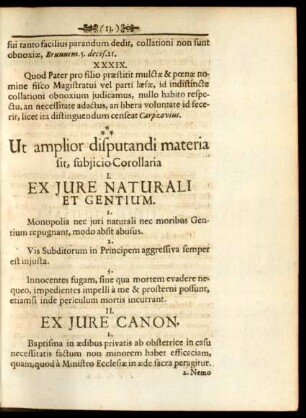 (13.)
sui tanto facilius parandum dedit, collationi non sunt
obnoxiæ, Brunnem. 5. decis. 21.
XXXIX.
Quod Pater pro filio præstitit mulctæ & pœnæ no-
mine fisco Magistratui vel parti læsæ, id indistincte
collationi obnoxium judicamus, nullo habito respe-
ctu, an necessitate adactus, an libera voluntate id fece-
rit, licet ita distinguendum censeat Carpzovius.
Ut amplior disputandi materia
sit, subjicio Corollaria
I.
EX JURE NATURALI
ET GENTIUM.
1.
Monopolia nec juri naturali nec moribus Gen-
tium repugnant, modo absit abusus.
2.
Vis Subditorum in Principem aggressiva semper
est injusta.
Innocentes fugam, sine qua mortem evadere ne-
queo, impedientes impelli à me & prosterni possunt,
etiamsi inde periculum mortis incurrant.
II.
EX JURE CANON.
1.
Baptisma in ædibus privatis ab obstetrice in casu
necessitatis factum non minorem habet efficaciam,
quam, quod à Ministro Ecclesiæ in æde sacra peragitur.
2. Nemo